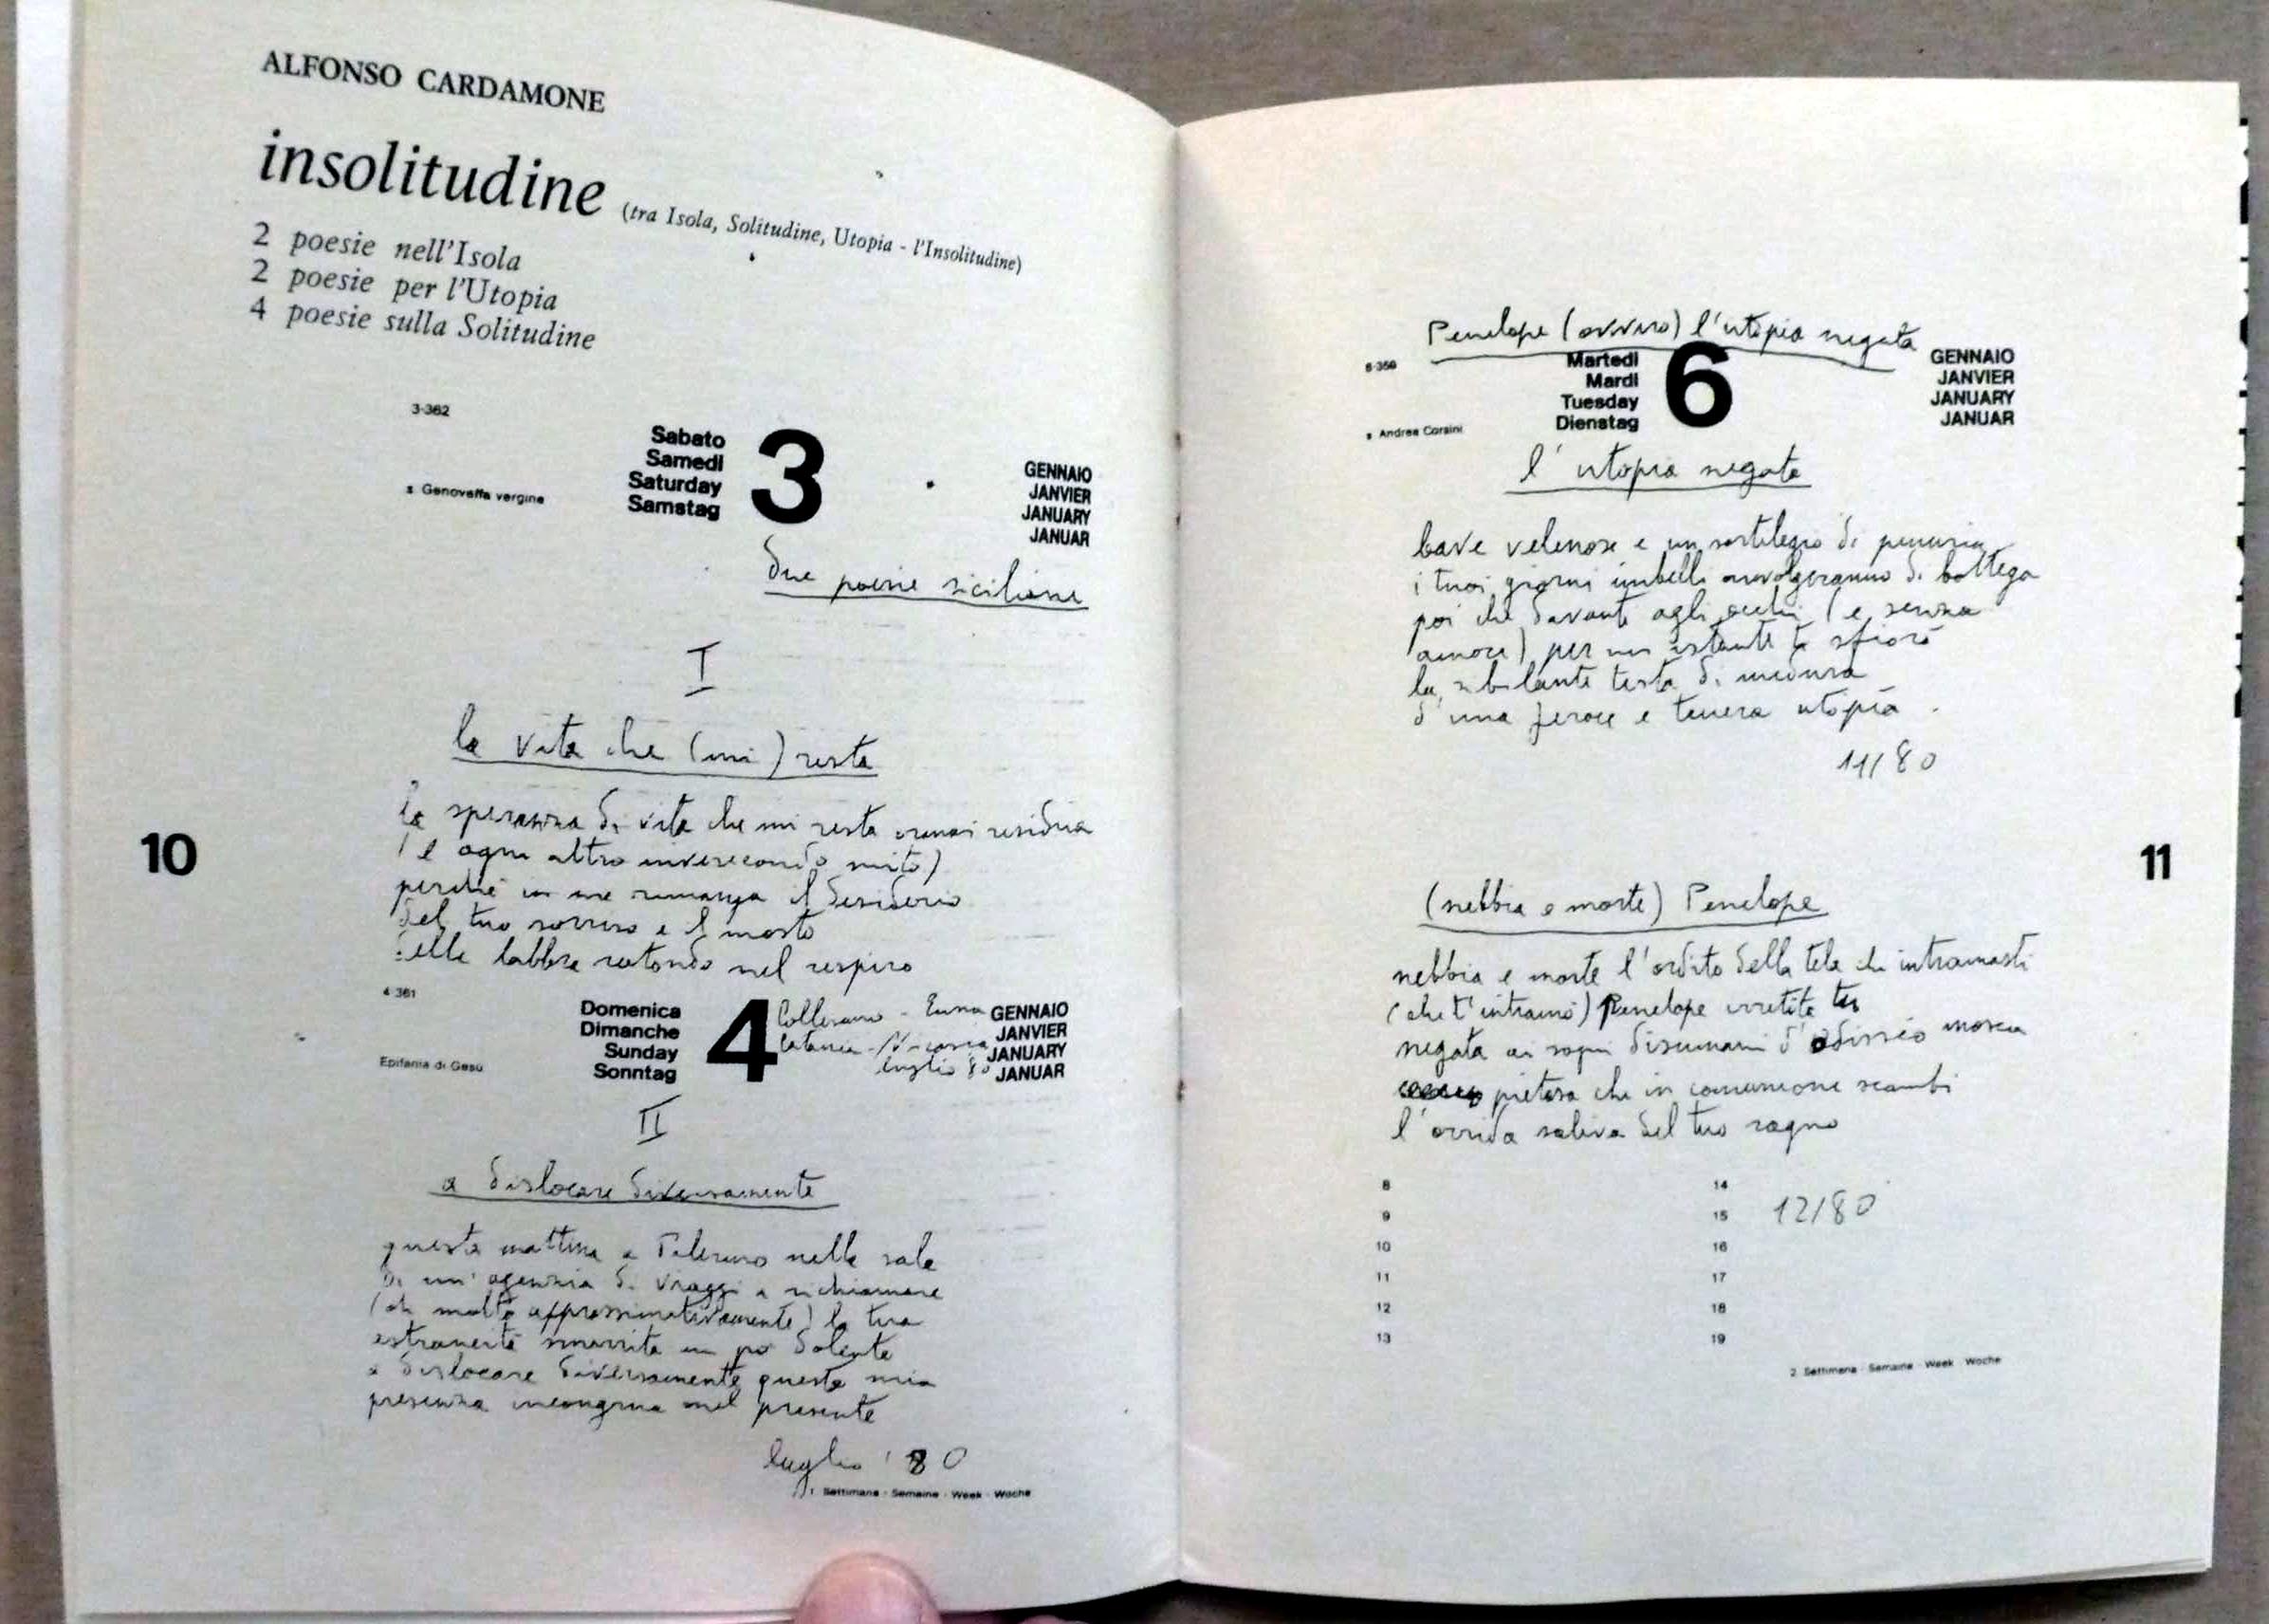 ALFONSO CARDAMONE
insolitudine (tra Isola, Solitudine, Utopia - l'Insolitudine)
2 poesie nell'Isola
2 poesie per l'Utopia
4 poesie sulla Solitudine
3-362
Sabato
Samedi
Saturday
Samstag
3
GENNAIO
JANVIER
JANUARY
JANUAR
s Genoveffa vergine
due poesie siciliane
I
la vita che (mi) resta
la speranza di vita che mi resta ormai residua
(e ogni altro inverecondo mito)
perché in me rimanga il desiderio
del tuo sorriso e il mosto
delle labbra rotondo nel respiro
4-361
Domenica
Dimanche
Sunday
Sonntag
4
Collesano - Enna
Catania - Nicosia
luglio 80
GENNAIO
JANVIER
JANUARY
JANUAR
Epifania di Gesù
II
a dislocare diversamente
questa mattina a Palermo nella sala
di un'agenzia di viaggi a richiamare
(oh molto approssimativamente) la tua
estraneità smarrita un po' dolente
a dislocare diversamente questa mia
presenza incongrua nel presente
luglio '80
1 Settimana - Semaine - Week - Woche
10
Penelope (ovvero) l'utopia negata
6-359
Martedì
Mardi
Tuesday
Dienstag
6
GENNAIO
JANVIER
JANUARY
JANUAR
s Andrea Corsini
l'utopia negata
bave velenose e un sortilegio di penuria
i tuoi giorni imbelli avvolgeranno di bottega
poi che davanti agli occhi (e senza
amore) per un istante ti sfiorò
la sibilante testa di medusa
d'una feroce e tenera utopia.
11/80
(nebbia e morte) Penelope
nebbia e morte l'ordito della tela che intramasti
(che t'intramò) Penelope irretita tu
negata ai sogni disumani d'odisseo mosca
pietosa che in comunione scambi
l'orrida saliva del tuo ragno
8
9
10
11
12
13
14
15
16
17
18
19
12/80
2 Settimana - Semaine - Week - Woche
11